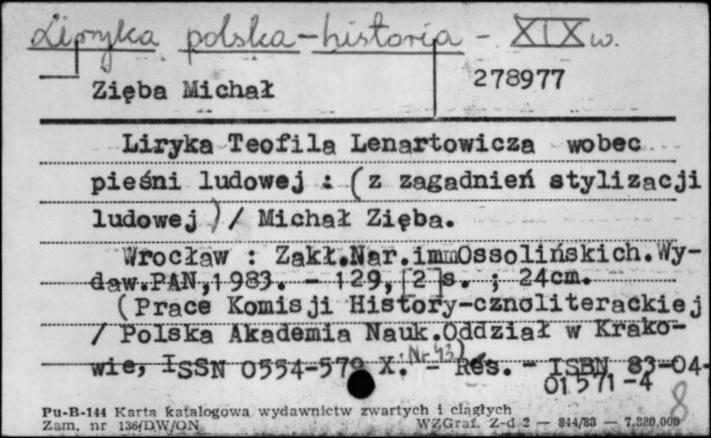 Liryka polska - historia - XIX w.
Zięba Michał
278977
Liryka Teofila Lenartowicza wobec
pieśni ludowej : (z zagadnień stylizacji
ludowej) / Michał Zięba.
Wrocław : Zakł.Nar.immOssolińskich.Wy-
daw.PAN,1983. - 129,[2]s. ; 24cm.
(Prace Komisji History-cznoliterackiej
/ Polska Akademia Nauk.Oddział w Krako-
wie, ISSN 0554-579 X. Nr 43) - Res. - ISBN 83-04-
01571-4
8
Pu-B-144 Karta katalogowa wydawnictw zwartych i ciągłych
Zam. nr 136/DW/ON WZGraf. Z-d 2 — 844/83 — 7.320.000